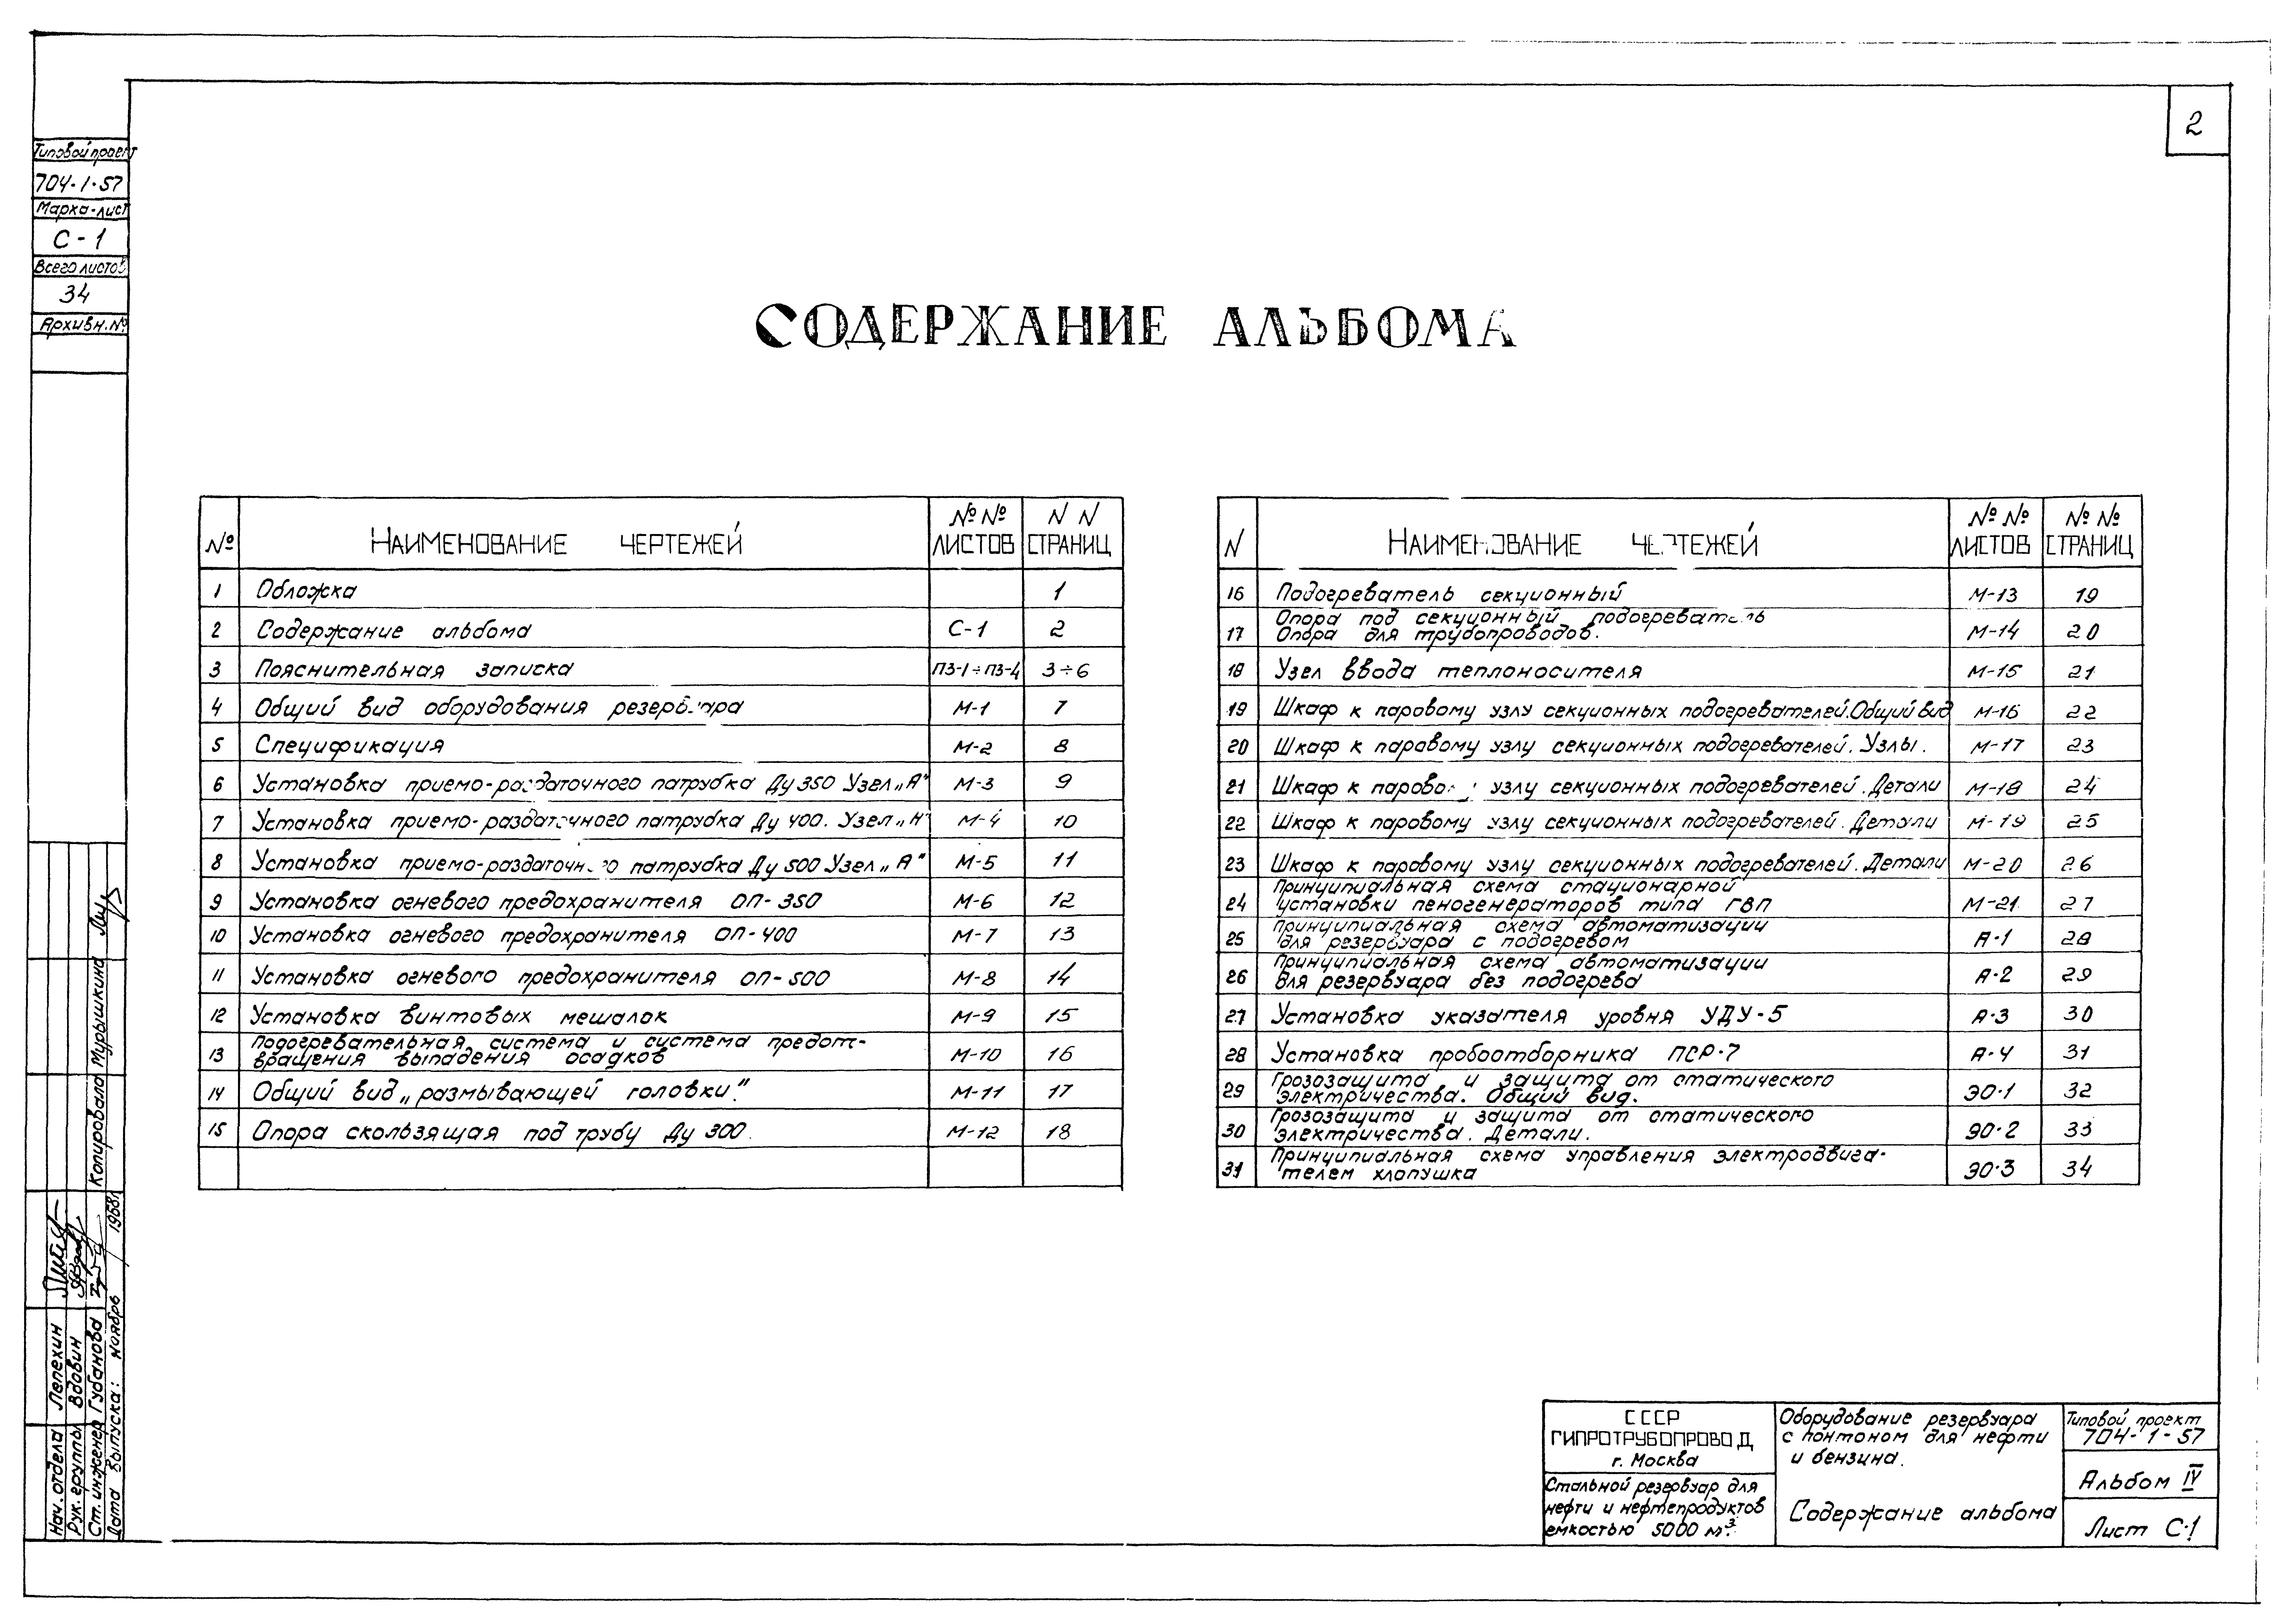 2
Типовой проект
704-1-57
Марка-лист
С-1
Всего листов
34
Архивн.№
СОДЕРЖАНИЕ АЛЬБОМА
№ НАИМЕНОВАНИЕ ЧЕРТЕЖЕЙ №№ ЛИСТОВ N N СТРАНИЦ
1 Обложка 1
2 Содержание альбома С-1 2
3 Пояснительная записка ПЗ-1÷ПЗ-4 3÷6
4 Общий вид оборудования резервуара М-1 7
5 Спецификация М-2 8
6 Установка приемо-раздаточного патрубка Ду 350 Узел „А" М-3 9
7 Установка приемо-раздаточного патрубка Ду 400. Узел „А" М-4 10
8 Установка приемо-раздаточного патрубка Ду 500 Узел „А" М-5 11
9 Установка огневого предохранителя ОП-350 М-6 12
10 Установка огневого предохранителя ОП-400 М-7 13
11 Установка огневого предохранителя ОП-500 М-8 14
12 Установка винтовых мешалок М-9 15
13 Подогревательная система и система предот-
вращения выпадения осадков М-10 16
14 Общий вид „размывающей головки." М-11 17
15 Опора скользящая под трубу Ду 300. М-12 18
N НАИМЕНОВАНИЕ ЧЕРТЕЖЕЙ №№ ЛИСТОВ №№ СТРАНИЦ
16 Подогреватель секционный М-13 19
17 Опора под секционный подогреватель
Опора для трубопроводов. М-14 20
18 Узел ввода теплоносителя М-15 21
19 Шкаф к паровому узлу секционных подогревателей.Общий вид М-16 22
20 Шкаф к паровому узлу секционных подогревателей. Узлы. М-17 23
21 Шкаф к паровому узлу секционных подогревателей. Детали М-18 24
22 Шкаф к паровому узлу секционных подогревателей. Детали М-19 25
23 Шкаф к паровому узлу секционных подогревателей. Детали М-20 26
24 Принципиальная схема стационарной
установки пеногенераторов типа ГВП М-21 27
25 Принципиальная схема автоматизации
для резервуара с подогревом А-1 28
26 Принципиальная схема автоматизации
для резервуара без подогрева А-2 29
27 Установка указателя уровня УДУ-5 А-3 30
28 Установка пробоотборника ПСР-7 А-4 31
29 Грозозащита и защита от статического
электричества. Общий вид. ЭО-1 32
30 Грозозащита и защита от статического
электричества. Детали. ЭО-2 33
31 Принципиальная схема управления электродвига-
телем хлопушка ЭО-3 34
Нач. отдела Лепехин
Рук. группы Вдовин
Ст. инженер Губанова
Дата выпуска: ноябрь 1968г
Копировала Мурышкина
СССР
ГИПРОТРУБОПРОВОД
г. Москва
Стальной резервуар для
нефти и нефтепродуктов
емкостью 5000 м³.
Оборудование резервуара
с понтоном для нефти
и бензина.
Содержание альбома
Типовой проект
704-1-57
Альбом IV
Лист С-1